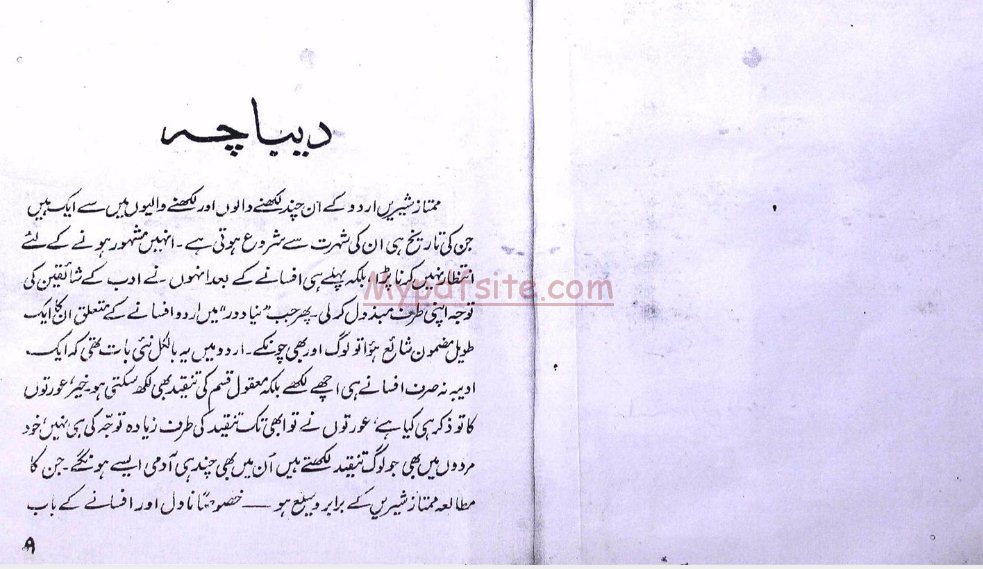 دیباچہ
ممتاز شیریں اردو کے ان چند لکھنے والوں اور لکھنے والیوں میں سے ایک ہیں
جن کی تاریخ ہی ان کی شہرت سے شروع ہوتی ہے۔ انہیں مشہور ہونے کے لئے
انتظار نہیں کرنا پڑا، بلکہ پہلے ہی افسانے کے بعد انہوں نے ادب کے شائقین کی
Mypdfsite.com
توجہ اپنی طرف مبذول کر لی۔ پھر جب "نیا دور" میں اردو افسانے کے متعلق ان کا ایک
طویل مضمون شائع ہوٴا تو لوگ اور بھی چونکے۔ اردو میں یہ بالکل نئی بات تھی کہ ایک
ادیبہ نہ صرف افسانے ہی اچھے لکھے بلکہ معقول قسم کی تنقید بھی لکھ سکتی ہو۔ خیر، عورتوں
کا تو ذکر ہی کیا ہے، عورتوں نے تو ابھی تک تنقید کی طرف زیادہ توجّہ کی ہی نہیں، خود
مردوں میں بھی جو لوگ تنقید لکھتے ہیں اُن میں بھی چند ہی آدمی ایسے ہونگے۔ جن کا
مطالعہ ممتاز شیریں کے برابر وسیع ہو — خصوصاً ناول اور افسانے کے باب
۹